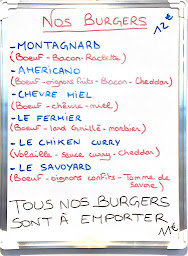 NOS BURGERS
12€
- MONTAGNARD
(Boeuf - Bacon - Raclette)
- AMERICANO
(Boeuf - oignons frits - Bacon - Cheddar)
- CHEVRE MIEL
(Boeuf - chèvre - miel)
- LE FERMIER
(Boeuf - lard Grillé - morbier)
- LE CHIKEN CURRY
(Volaille - sauce curry - Cheddar)
- LE SAVOYARD
(Boeuf - oignons confits - Tomme de
Savoie)
TOUS NOS BURGERS
SONT À EMPORTER
11€